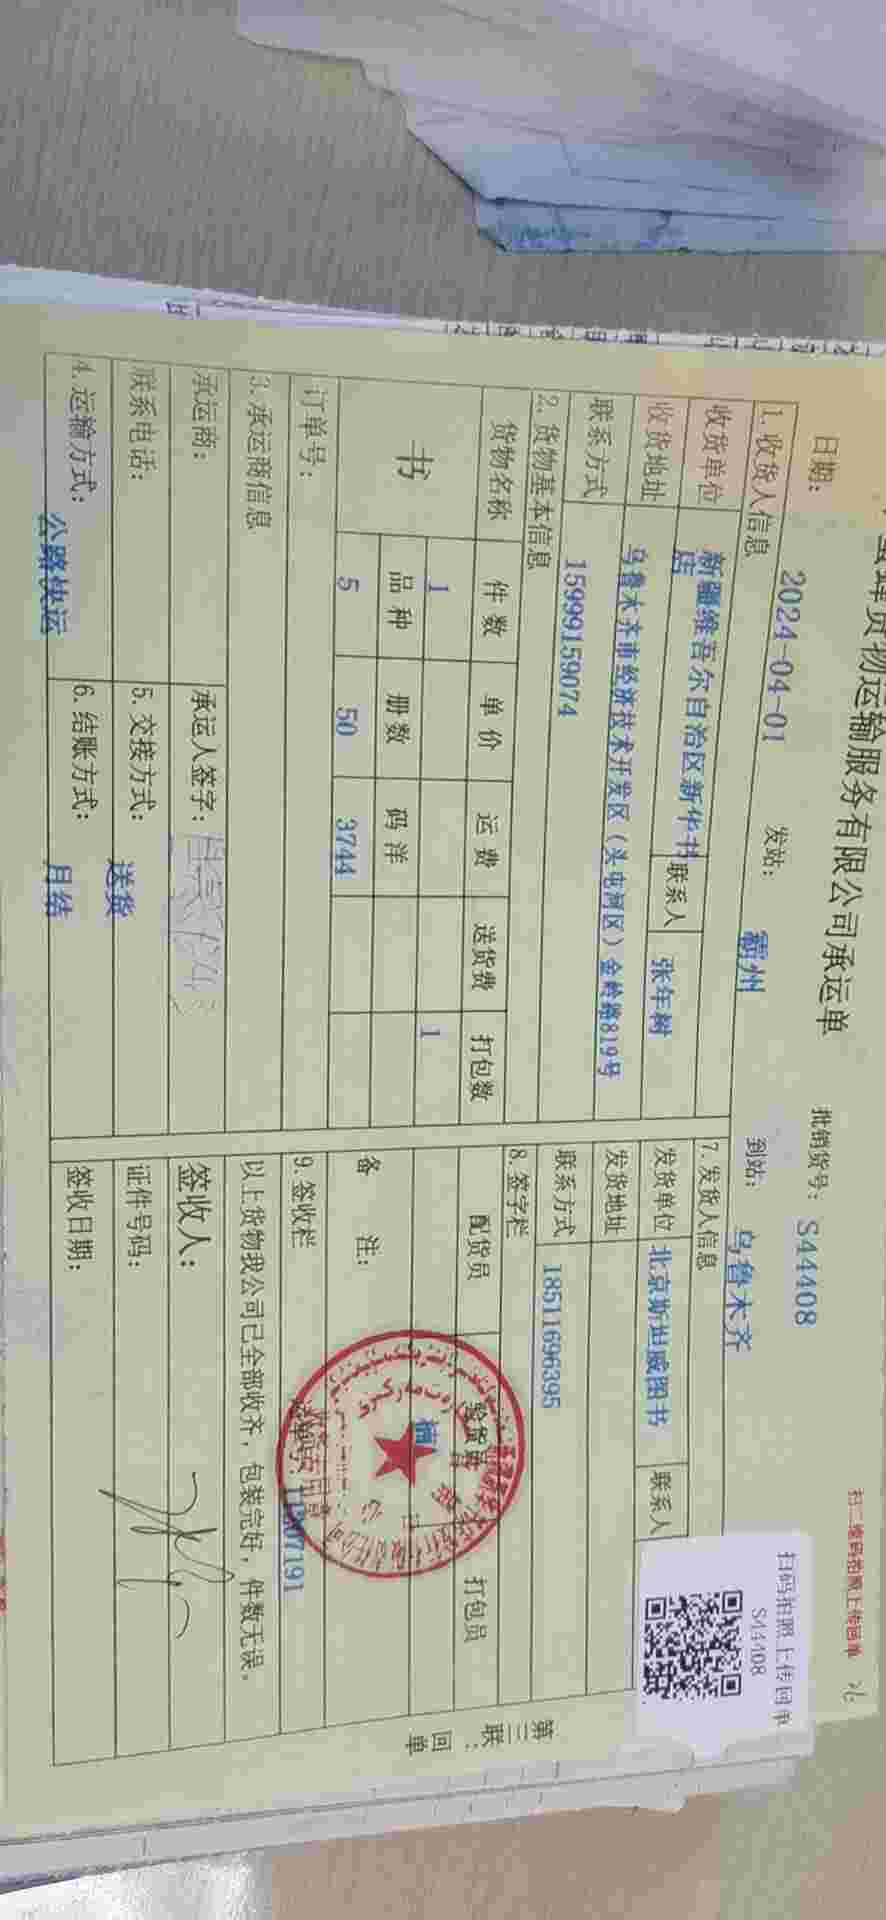 蜂货物运输服务有限公司承运单
扫二维码拍照上传回单
日期: 2024-04-01 发站: 霸州 到站: 乌鲁木齐
批销货号: S44408
扫码拍照上传回单
S44408
1. 收货人信息
收货单位 新疆维吾尔自治区新华书店 联系人 张年树
收货地址 乌鲁木齐市经济技术开发区(头屯河区)金岭路819号
联系方式 15999159074
2. 货物基本信息
货物名称 件数 单价 运费 送货费 打包数
书 1 1
品种 册数 码洋
5 50 3744
订单号:
3. 承运商信息
承运商: 承运人签字:
联系电话: 5. 交接方式: 送货
4. 运输方式: 公路快运 6. 结账方式: 月结
7. 发货人信息
发货单位 北京斯坦威图书 联系人
发货地址
联系方式 18511696395
8. 签字栏
配货员 验货员 打包员
备 注:
9. 签收栏
以上货物我公司已全部收齐,包装完好,件数无误。
签收人:
证件号码:
签收日期:
第三联:回单